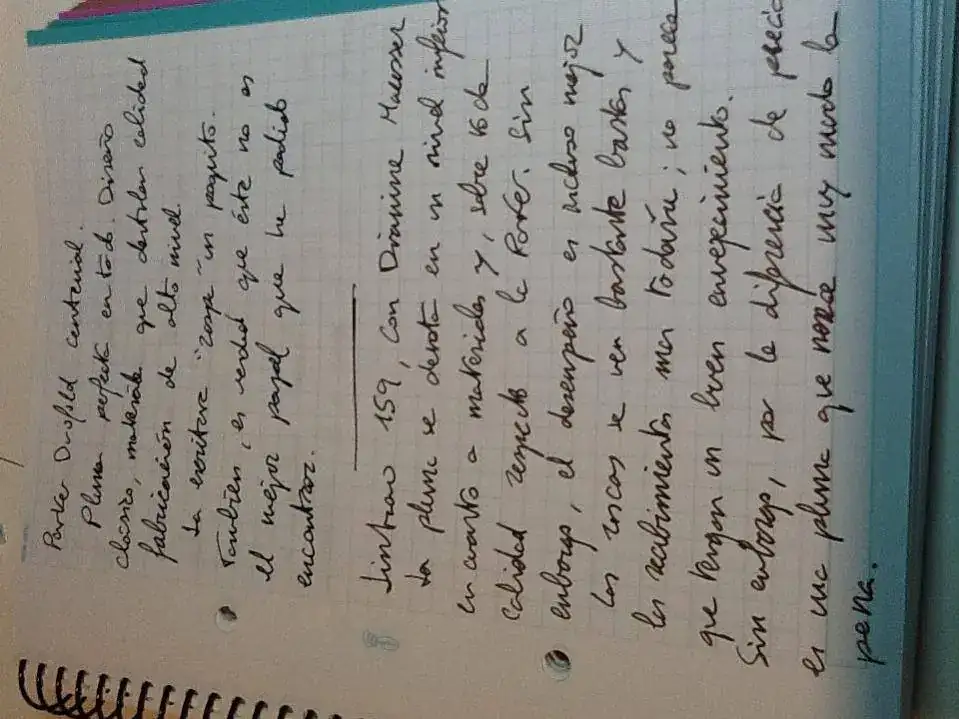 Parker Duofold centenial.
Pluma perfecta en todo. Diseño
clásico, materiales que destilan calidad
fabricación de alto nivel.
La escritura "raspa" un poquito.
También, es verdad que éste no es
el mejor papel que he podido
encontrar.
Jinhao 159, con Diamine Macassar
La pluma se denota en un nivel inferior
en cuanto a materiales y, sobre todo
calidad respecto a la Parker. Sin
embargo, el desempeño es incluso mejor
Las roscas se ven bastante bastas y
los recubrimientos más todavía; no parece
que tengan un buen envejecimiento.
Sin embargo, por la diferencia de precio
es una pluma que merece muy mucho la
pena.